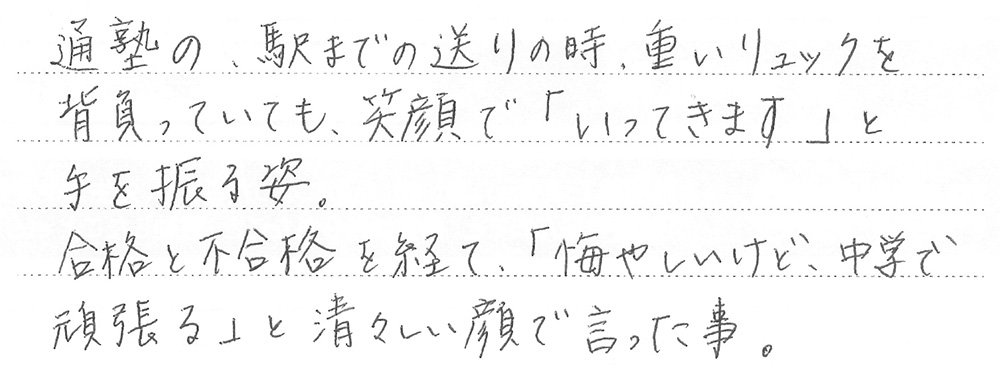 通塾の、駅までの送りの時、重いリュックを
背負っていても、笑顔で「いってきます」と
手を振る姿。
合格と不合格を経て、「悔やしいけど、中学で
頑張る」と清々しい顔で言った事。